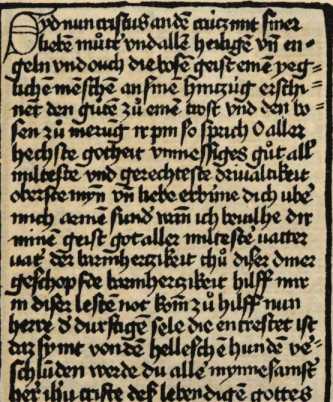 So nun cristus an dē crütz mit siner
liebē mutt' vnd allē heiligē vn̄ en-
geln vnd ouch die bosē geist emē yeg-
lichē mēschē an sinē hinzug erschi-
net den gutē zu emē trost vnd den bo-
sen zu so sprich O aller
hechste gotheit vnmessiges gut all'
milteste vnd gerechteste driualtikeit
oberste myn vn̄ liebe erbarme dich vbe'
mich armē sund' wan̄ ich beuilhe dir
minē geist got aller milteste' vatter
vat' der barmhertzikeit thu diser diner
geschopfde barmhertzikeit hilff mir
in diser lestē not kom̄ zu hilff nun
herre d' durstigē sele die entrestet ist
dz sy nit von dē helleschē hundē ve'-
schludē werde du alle' mynnesamst'
her' ihu criste des lebendigē gottes